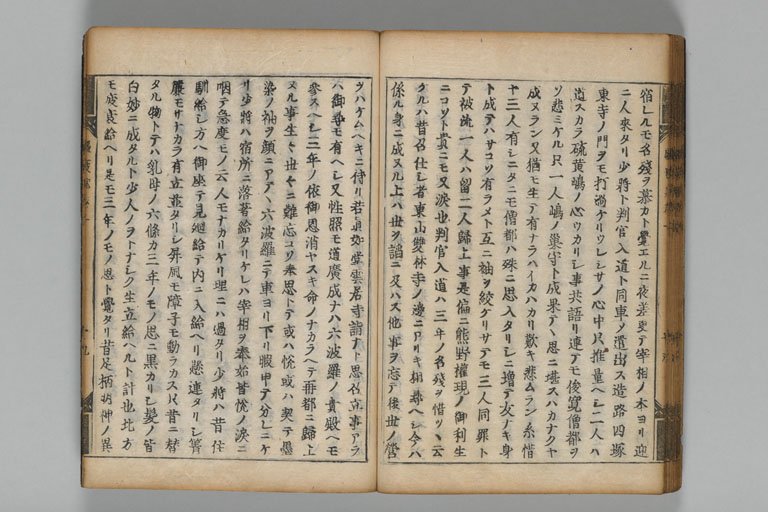 宿レルモ名残ヲ慕カト覺エルニ夜差更テ宰相ノ本ヨリ迎
ニ人來タリ少將ト判官入道ト同車ソ遣出ス造路四塚
東寺ノ門ヲモ打過ケリウレシサノ心中只推量ヘシ二人ハ
道スカラ硫黄嶋ノ心ウカリシ事共語リ連テモ俊寛僧都ヲ
ソ悲ミケル只一人嶋ノ巣守ト成果テヽ思ニ堪スハカナクヤ
成ヌラン又猶モ生テ有ナラハイカハカリ歎キ悲ムラン系惜
ヤ三人有シニタニモ僧都ハ殊ニ思入タリシニ増テ友ナキ身
ト成テハサコソ有ラメト互ニ袖ヲ絞ケリサテモ三人同罪ト
テ被流一人ハ留二人歸上事是偏ニ熊野權現ノ御利生
ニコソト貴ニモ又涙也判官入道ハ三年ノ名残ヲ惜ツヽ云
ケルハ昔召仕シ者東山雙林寺ノ邊ニアリキ相尋ヘシ今ハ
係ル身ニ成ヌル上ハ世ヲ諂ニ及ハス他事ヲ忘テ後世ノ營
ヲハケムヘキニ侍リ若眞如堂雲居寺詣ナト思召立事アラ
ハ御尋モ有ヘシ又性照モ道廣成ナハ六波羅ノ貴殿ヘモ
參スヘシ三年ノ依御恩消ヤスキ命ノナカラヘテ再都ニ歸上
ヌル事生々世々ニ難忘コソ奉思トテ或ハ悦或ハ契テ墨
染ノ袖ヲ顔ニアテヽ六波羅ニテ車ヨリ下リ暇申テ分レニケ
リ少將ハ宿所ニ落著給タリケレハ宰相ヲ奉始皆悦ノ涙ニ
咽テ急度モノ云人モナカリケリ理ニハ過タリ少將ハ昔住
馴給シ方ヘ御座テ見廻給テ内ニ入給ヘリ悲連タリシ簀
簾モサナカラ有立並タリシ屏風モ障子モ動ラカス只昔ニ替
タル物トテハ乳母ノ六條カ三年ノモノ思ニ黒カリシ髪ノ皆
白妙ニ成タルト少人ノヲトナシク生立給ヘルト計也北方
モ疲衰給ヘリ是モ三年ノモノ思ト覺タリ昔足柄明神ノ異